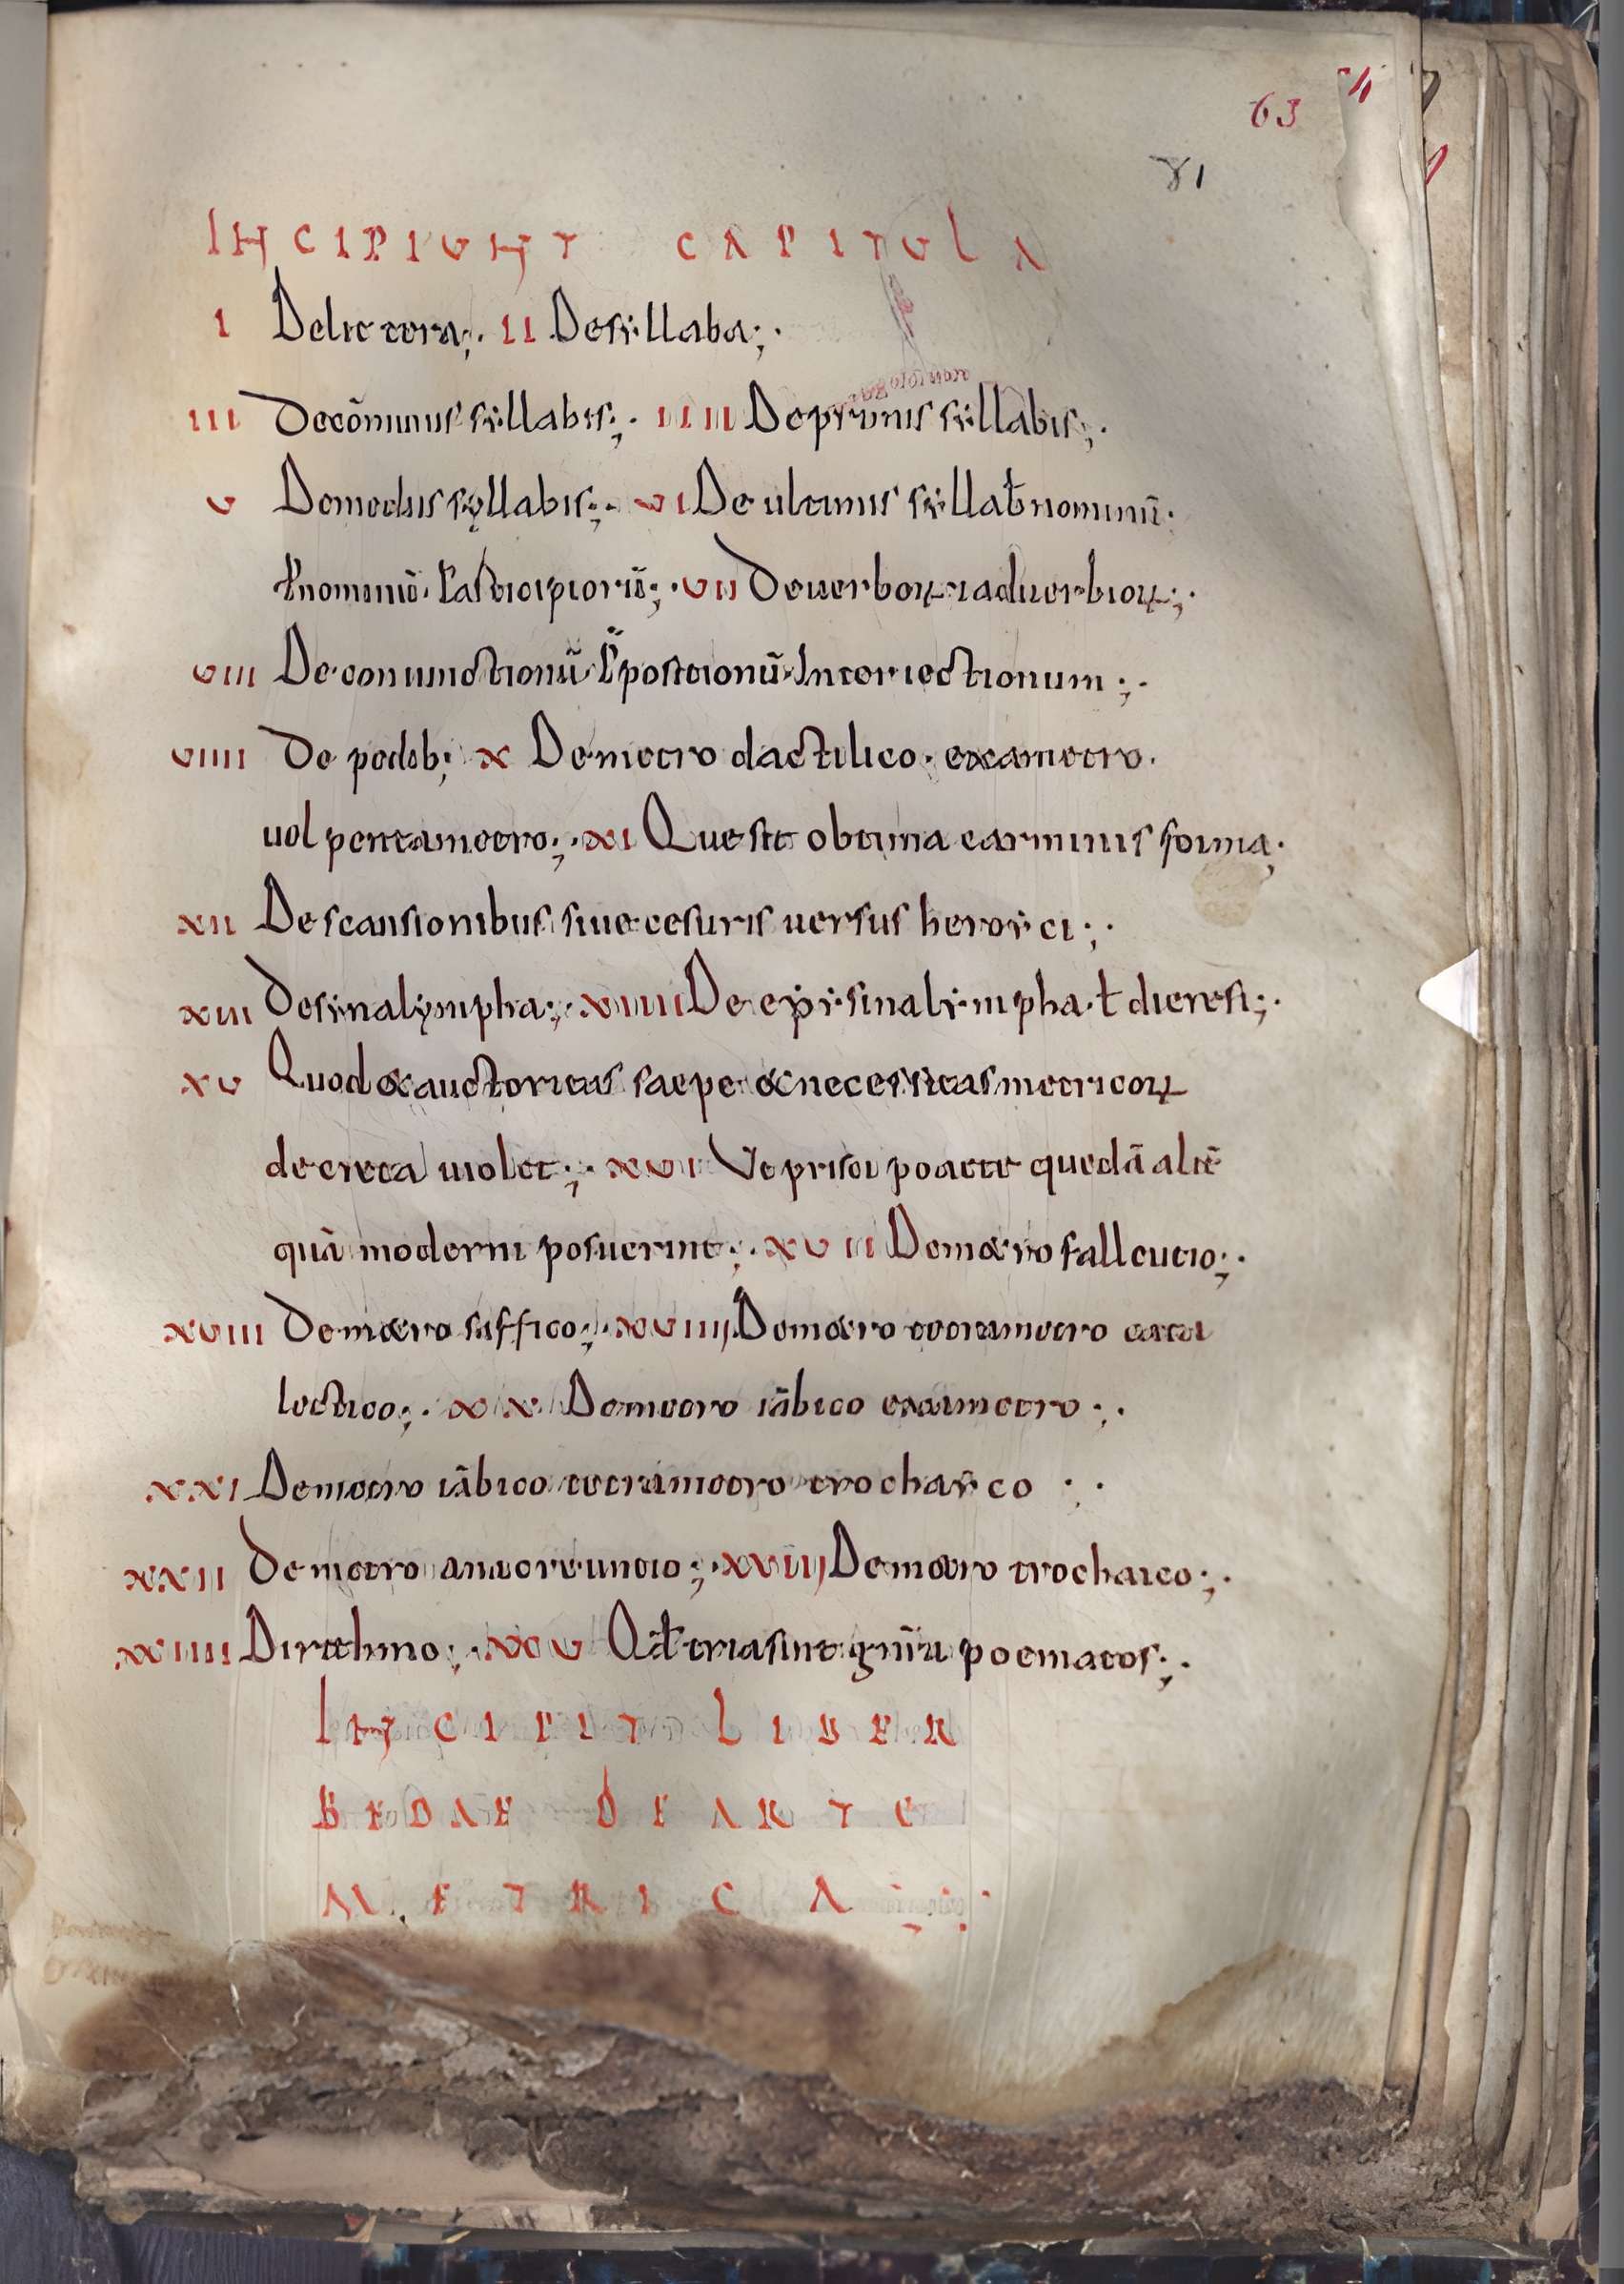 63
81
INCIPIUNT CAPITULA
I De littera;. II De syllaba;.
III De cōmunis syllabis;. IIII De primis syllabis;.
V De mediis syllabis;. VI De ultimis syllab̄ nominū.
P̱nominū. Participiorū;. VII De uerboꝝ ⁊ aduerbioꝝ;.
VIII De coniunctionū. P̄positionū. Interiectionum;.
VIIII De pedib; X De metro dactilico. exametro.
uel pentametro;. XI Que sit obtima carminis forma;
XII De scansionibus siue cesuris uersus heroyci;.
XIII De sinalympha;. XIIII De epysinalympha. ł dieresi;.
XV Quod & auctoritas saepe & necessitas metricoꝝ
decreta uiolet;. XVI Ut prisci poaete quedā alit̄
quā moderni posuerint;. XVII De metro falleutio;.
XVIII De metro saffico;. XVIIII De metro tetrametro cata
lectico;. XX De metro iābico exametro;.
XXI De metro iābico tetrametro trochayco ..
XXII De metro anacreuntio;. XXIII De metro trochaico;.
XXIIII Di rithmo;. XXV Qđ tria sint gn̄ra poematos;.
INCIPIT LIBER
BEDAE DE ARTE
METRICA